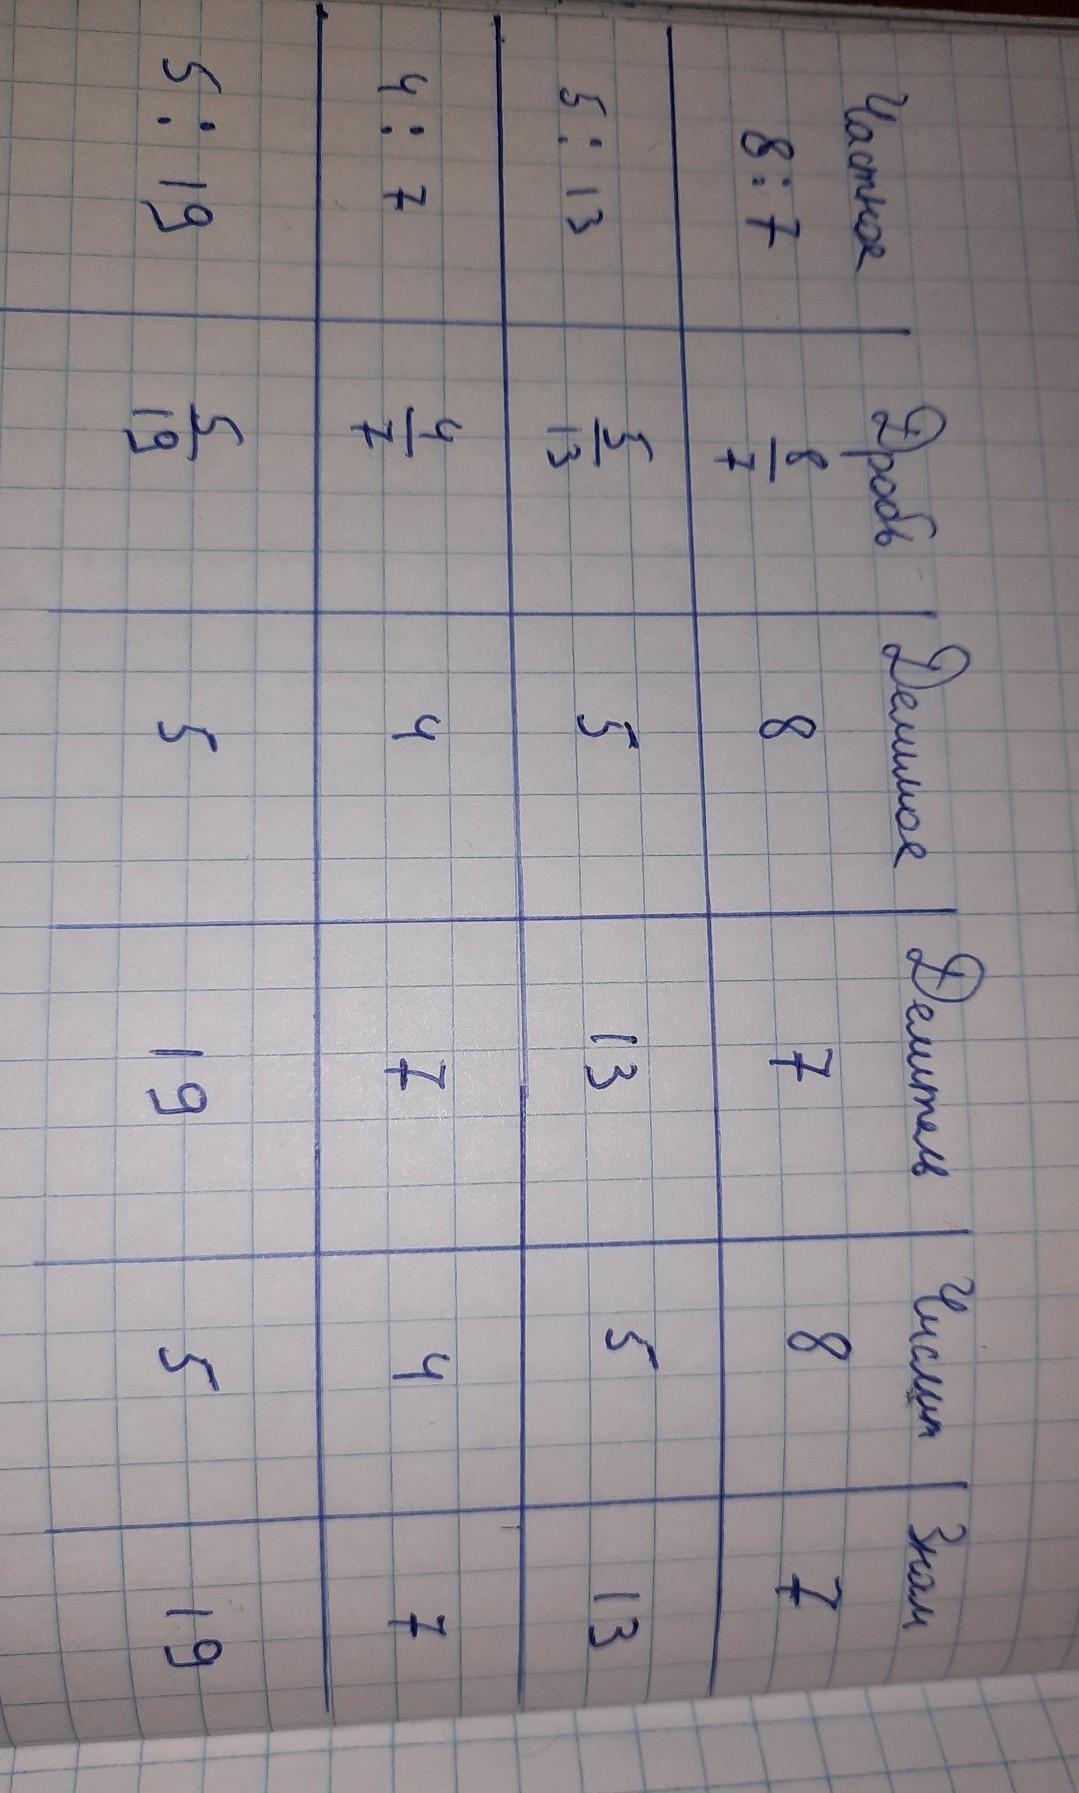 Частное Дробь Делимое Делитель Числит Знам
8:7 8/7 8 7 8 7
5:13 5/13 5 13 5 13
4:7 4/7 4 7 4 7
5:19 5/19 5 19 5 19